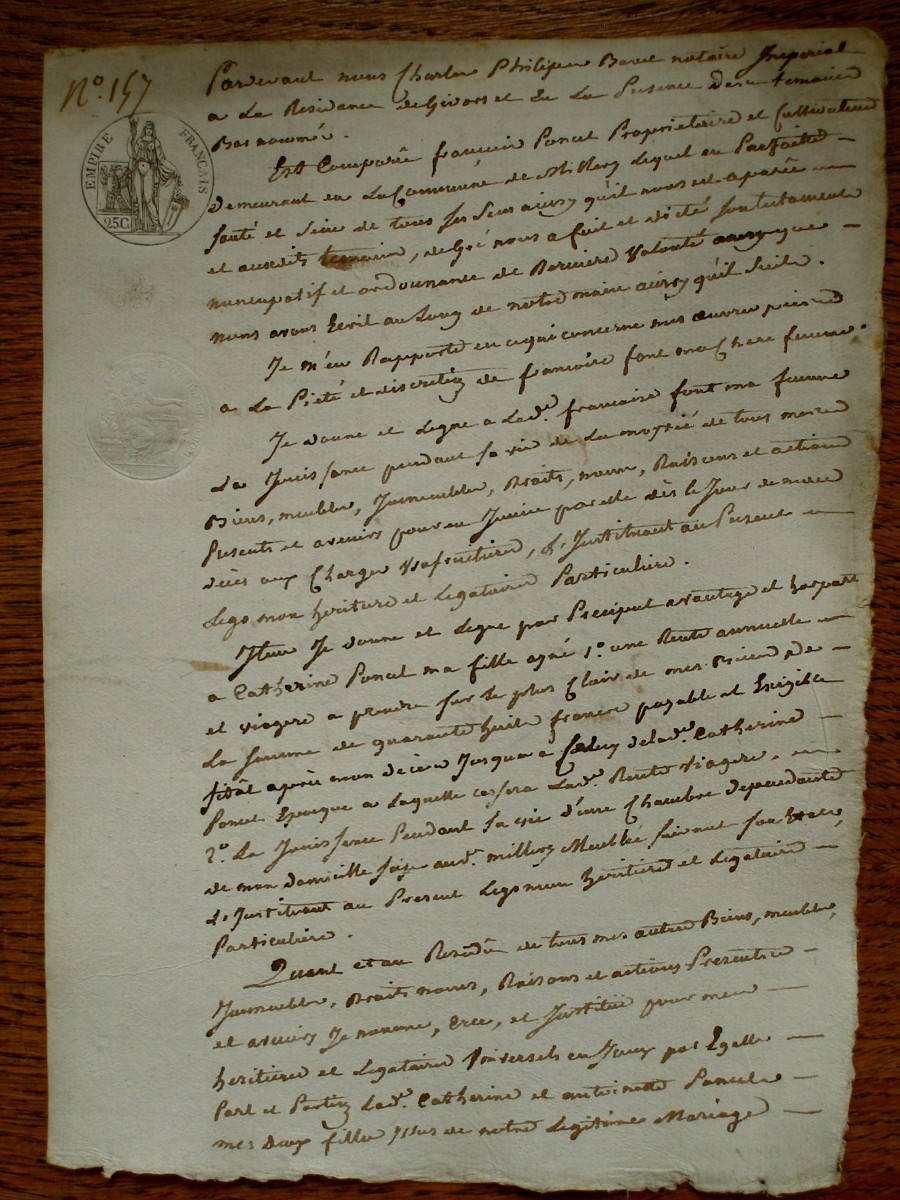 N.º 157
EMPIRE FRANÇAIS
25C
Pardevant nous Charles Philippe Barel notaire Imperial
a La Residance de Givors et En La Presence des temoins
Bas nommés.
Est Comparû françois Poncet Proprietaire et Cultivateur
demeurant en La Commune de Millery Lequel en Parfaite
santé et Sein de tous ses Sens ainsy qu'il nous est aparût
et auxdits temoins, de Gré nous a fait et dicté son testament
nuncupatif et ordonnance de Derniere Volonté ainsy que
nous avons Ecrit au Long de notre main ainsy qu'il Suit.
Je m'en Rapporte en ce qui concerne mes œuvres pies
a La Pieté et discretion de françoise font ma Chere femme.
Je donne et Legue a Lad.e françoise font ma femme
La Jouissance pendant sa vie de La moytié de tous mes
Biens, meubles, Immeubles, Droits, noms, Raisons et actions
Presents et avenirs pour en Jouir par elle dès le Jour de mon
décès aux Charges Usufruitieres, L'Instituant au Present
Legs mon heritiere et Legataire Particuliere.
Item Je donne et Legue par Préciput avantage et horspart
a Catherine Poncet ma fille ayné 1.º une Rente annuelle
et viagere a prendre sur le plus Clair de mes Biens de
La somme de quarante huit francs payable et Exigible
sitôt après mon décès Jusqua a Celuy de lad.e Catherine
Poncet Epoque a Laquelle cessera Lad.e Rente viagere.
2.º La Jouissance Pendant sa vie d'une Chambre dependante
de mon domicille sise aud.t millery Meublée suivant son Etat,
L'Instituant au Present Legs mon heritiere et Legataire
Particuliere.
Quant et au Residû de tous mes autres Biens, meubles,
Immeubles, Droits noms, Raisons et actions Presents
et avenirs Je nomme, Crée, et Institue pour mes
heritieres et Legataires Universels en Jouir par Egalle
Part et Portion Lad.e Catherine et antoinette Poncet
mes deux filles Issus de notre Legitime Mariage